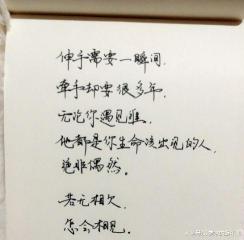 伸手需要一瞬间,
牵手却要很多年,
无论你遇见谁,
他都是你生命该出现的人,
绝非偶然。
若无相欠,
怎会相见。